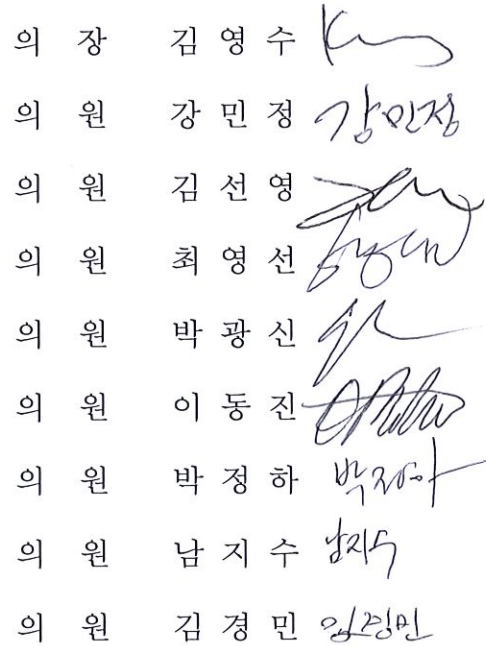 의 장 김 영 수
의 원 강 민 정 강민정
의 원 김 선 영
의 원 최 영 선
의 원 박 광 신
의 원 이 동 진
의 원 박 정 하 박정하
의 원 남 지 수 남지수
의 원 김 경 민 김경민